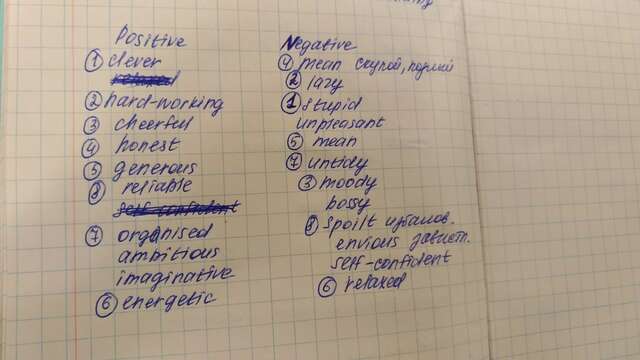 Positive
① clever
relaxed
② hard-working
③ cheerful
④ honest
⑤ generous
⑧ reliable
self-confident
⑦ organised
ambitious
imaginative
⑥ energetic
Negative
④ mean скупой, подлый
② lazy
① stupid
unpleasant
⑤ mean
⑦ untidy
③ moody
bossy
⑧ spoilt избалов.
envious завист.
self-confident
⑥ relaxed